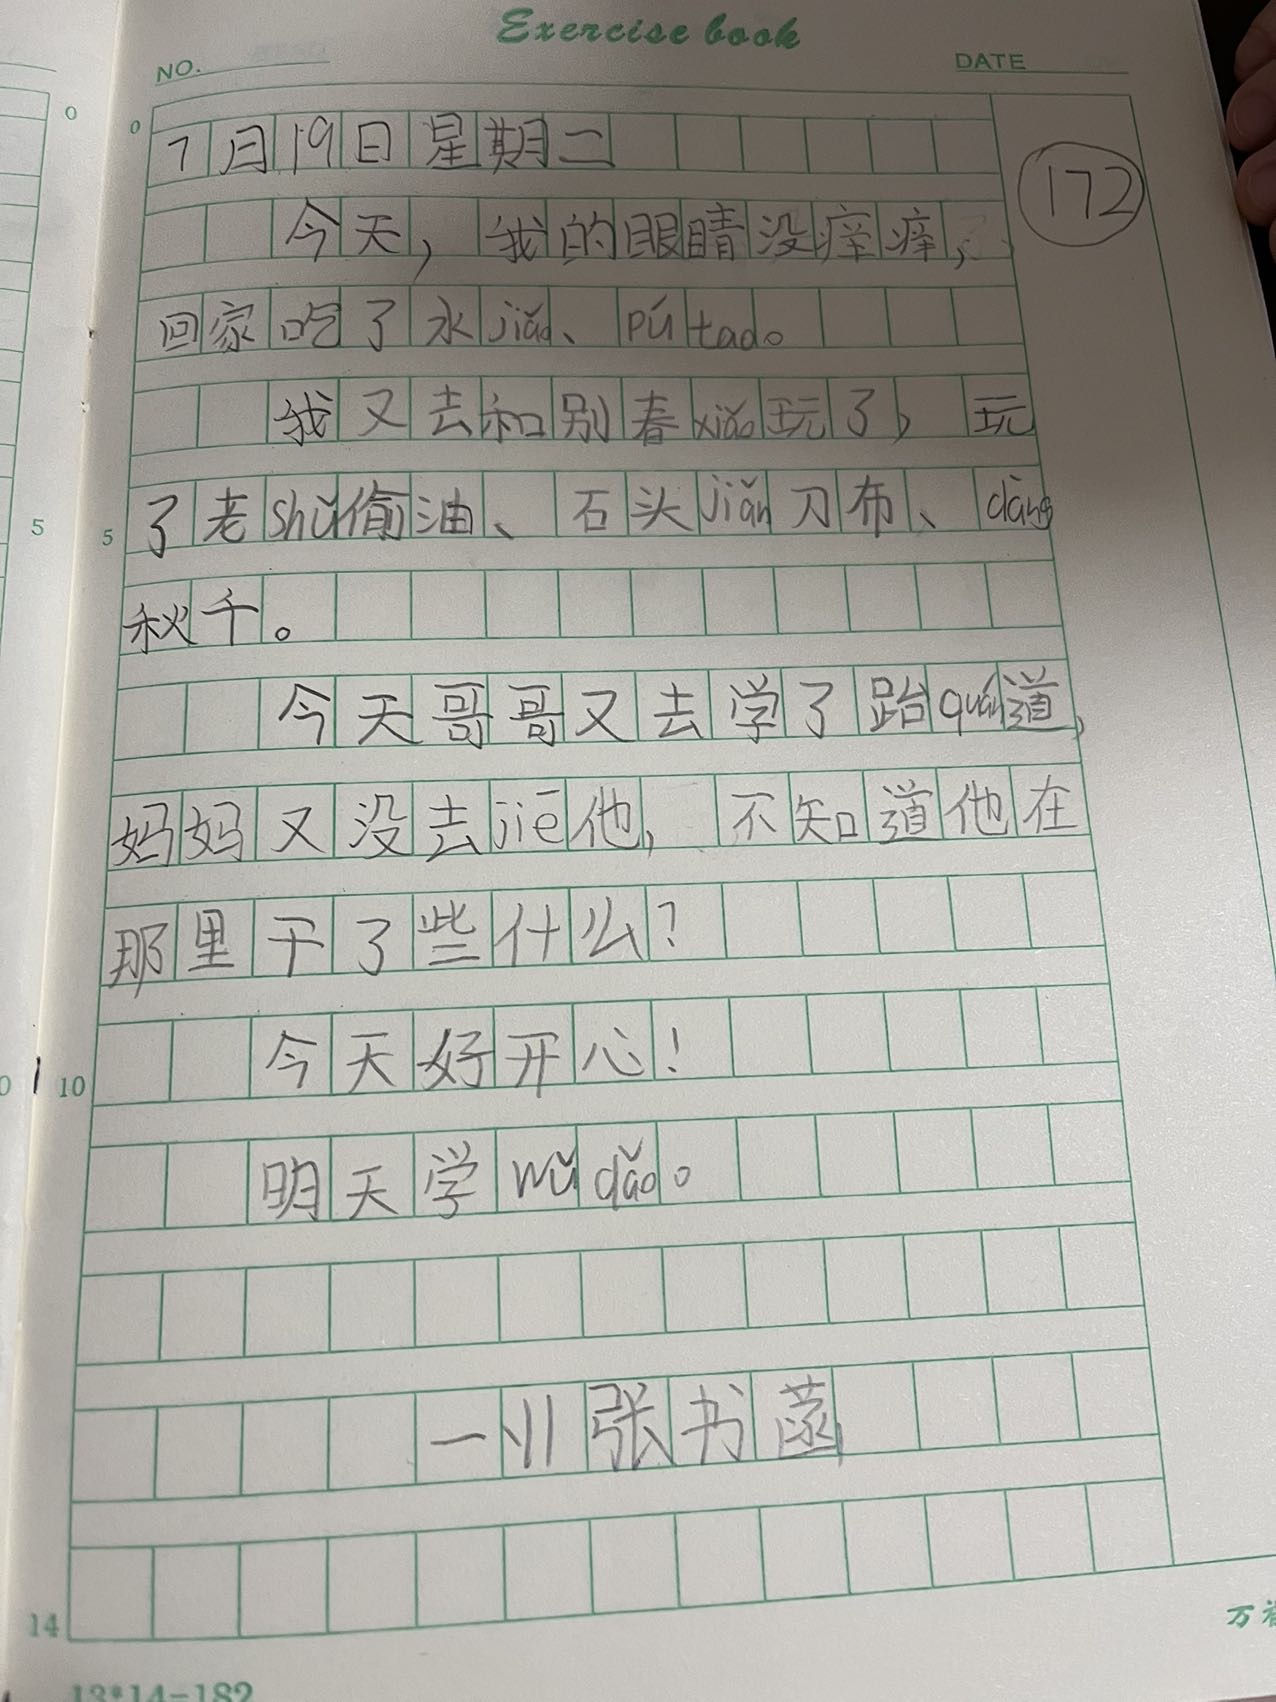 Exercise book
NO.
DATE
7月19日星期二
172
今天，我的眼睛没痒痒，
回家吃了水jiǎo、pútao。
我又去和别春xiǎo玩了，玩
了老shǔ偷油、石头jiǎn刀布、dàng
秋千。
今天哥哥又去学了跆quán道，
妈妈又没去jiē他，不知道他在
那里干了些什么？
今天好开心！
明天学wǔdǎo。
张书菡
0
0
5
5
10
14
13*14-182